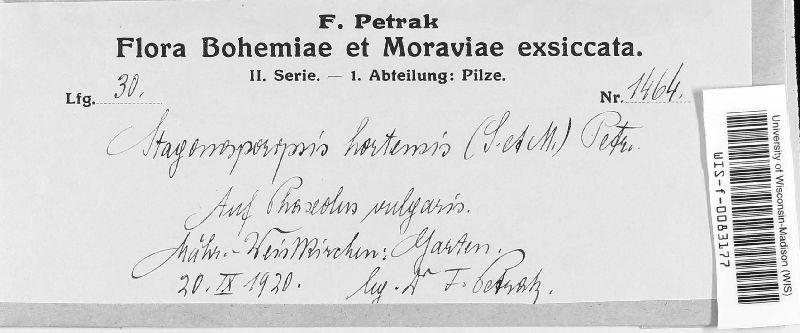 F. Petrak
Flora Bohemiae et Moraviae exsiccata.
II. Serie. — 1. Abteilung: Pilze.
Lfg. 30. Nr. 1464.
Stagonosporopsis hortensis (S. et M.) Petr.
Auf Phaseolus vulgaris.
Mähr.-Weisskirchen: Garten.
20. IX 1920. leg. Dr F. Petrak.
University of Wisconsin-Madison (WIS)
WIS-f-0083177